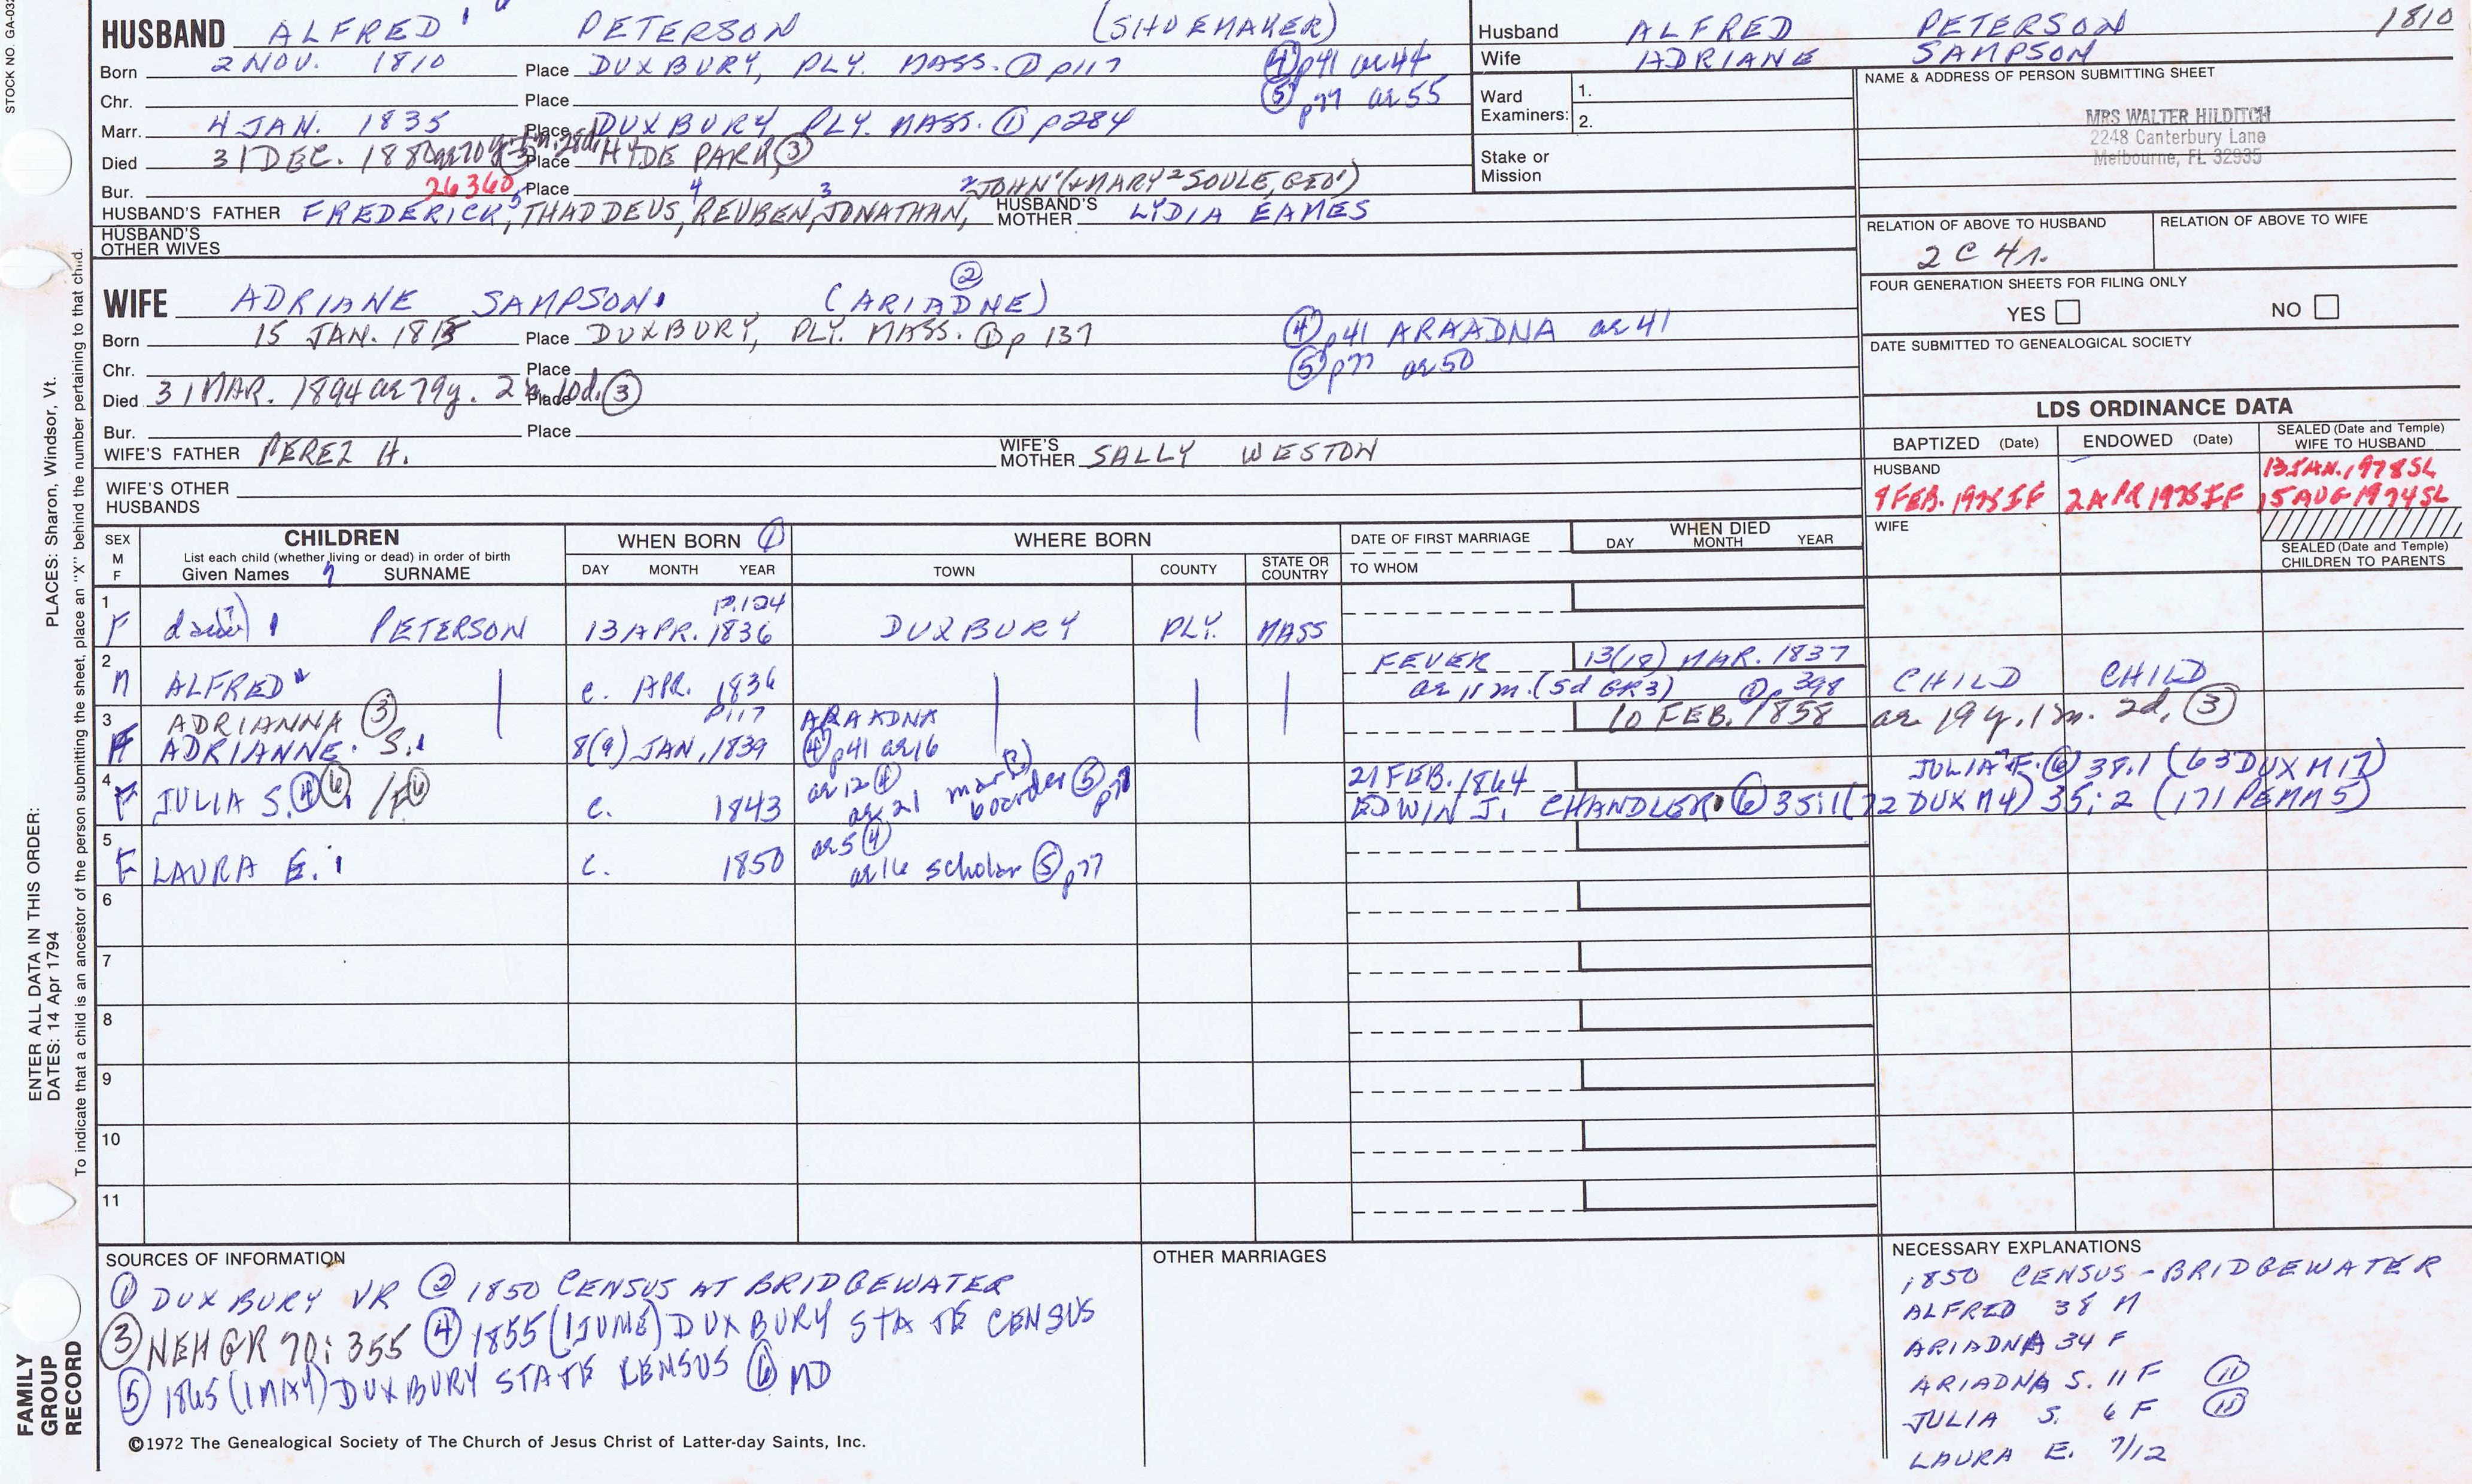 STOCK NO. GA-032
HUSBAND ALFRED PETERSON (SHOEMAKER)
Born 2 NOV. 1810 Place DUXBURY, PLY. MASS. ① p117 ④ p41 ae 44
Chr. Place ⑤ p77 ae 55
Marr. 4 JAN. 1835 Place DUXBURY PLY. MASS. ① p284
Died 31 DEC. 1880 Place HYDE PARK ③
Bur. 26360 Place
HUSBAND'S FATHER FREDERICK⁵, THADDEUS⁴, REUBEN³, JONATHAN, ²JOHN¹ (+MARY² SOULE, GEO¹) HUSBAND'S MOTHER LYDIA EAMES
HUSBAND'S OTHER WIVES
Husband ALFRED PETERSON 1810
Wife ADRIANE SAMPSON
Ward Examiners: 1.
2.
Stake or Mission
NAME & ADDRESS OF PERSON SUBMITTING SHEET
MRS WALTER HILDITCH
2248 Canterbury Lane
Melbourne, FL 32935
RELATION OF ABOVE TO HUSBAND RELATION OF ABOVE TO WIFE
2 C 4 r.
FOUR GENERATION SHEETS FOR FILING ONLY
YES NO
DATE SUBMITTED TO GENEALOGICAL SOCIETY
WIFE ADRIANE SAMPSON (ARIADNE) ②
Born 15 JAN. 1815 Place DUXBURY, PLY. MASS. ① p 137 ④ p41 ARAADNA ae 41
Chr. Place ⑤ p77 ae 50
Died 31 MAR. 1894 ae 79y. 2m. 10d. ③ Place
Bur. Place
WIFE'S FATHER PEREZ H. WIFE'S MOTHER SALLY WESTON
WIFE'S OTHER HUSBANDS
LDS ORDINANCE DATA
BAPTIZED (Date) ENDOWED (Date) SEALED (Date and Temple) WIFE TO HUSBAND
HUSBAND 13 JAN. 1978 SL
9 FEB. 1975 IF 2 APR 1975 IF 15 AUG 1974 SL
WIFE
SEALED (Date and Temple) CHILDREN TO PARENTS
SEX M F CHILDREN WHEN BORN ① WHERE BORN DATE OF FIRST MARRIAGE WHEN DIED
List each child (whether living or dead) in order of birth
Given Names SURNAME DAY MONTH YEAR TOWN COUNTY STATE OR COUNTRY TO WHOM DAY MONTH YEAR
1 p.124
F PETERSON 13 APR. 1836 DUXBURY PLY. MASS
2 FEVER 13(18) MAR. 1837
M ALFRED c. APR. 1836 ae 11 m. (5d GR3) ① p 398 CHILD CHILD
3 ADRIANNA ③ p117 ARAADNA 10 FEB. 1858 ae 19 y. 1 m. 2d. ③
F ADRIANNE S. 8(9) JAN, 1839 ④ p41 ae 16
4 ae 12 ④ 21 FEB. 1864 JULIA F. ⑥ 38:1 (63 DUX M17)
F JULIA S. ④ ⑥ /F ⑥ c. 1843 ae 21 boarder ⑤ EDWIN J. CHANDLER ⑥ 35:1 (72 DUX M4) 35:2 (171 PEMM 5)
5 ae 5 ④
F LAURA E. c. 1850 ae 16 scholar ⑤ p77
6
7
8
9
10
11
SOURCES OF INFORMATION
① DUXBURY VR ② 1850 CENSUS AT BRIDGEWATER
③ NEHGR 70:355 ④ 1855 (1 JUNE) DUXBURY STATE CENSUS
⑤ 1865 (1 MAY) DUXBURY STATE CENSUS ⑥ MD
OTHER MARRIAGES
NECESSARY EXPLANATIONS
1850 CENSUS - BRIDGEWATER
ALFRED 38 M
ARIADNA 34 F
ARIADNA S. 11 F ⑪
JULIA S. 6 F
LAURA E. 7/12
©1972 The Genealogical Society of The Church of Jesus Christ of Latter-day Saints, Inc.
FAMILY GROUP RECORD
ENTER ALL DATA IN THIS ORDER:
DATES: 14 Apr 1794
PLACES: Sharon, Windsor, Vt.
To indicate that a child is an ancestor of the person submitting the sheet, place an "X" behind the number pertaining to that child.